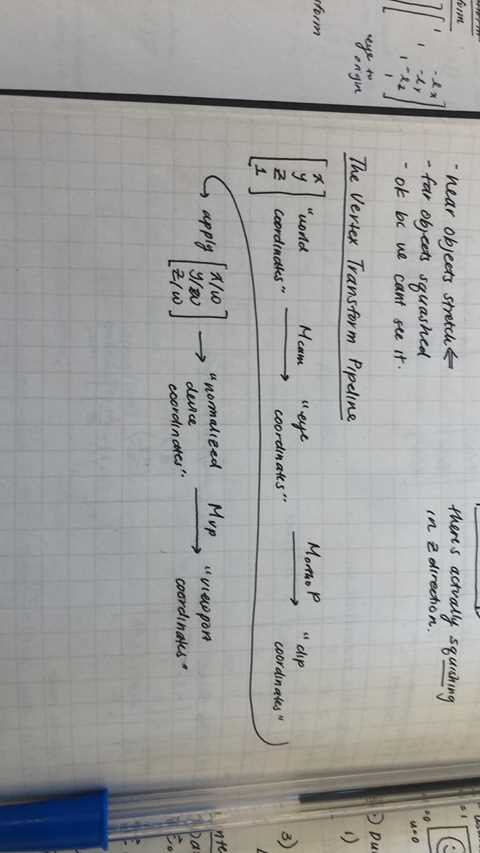 form
eye to
origin
- near objects stretch ←
- far objects squashed
- ok bc we cant see it.
there's actually squishing
in z direction.
The Vertex Transform Pipeline
[x y z 1] "world coordinates" → Mcam "eye coordinates" → Mortho P "clip coordinates"
apply [x/w y/w z/w] → "normalized device coordinates" → Mvp "viewport coordinates"
3)
1)
u=0